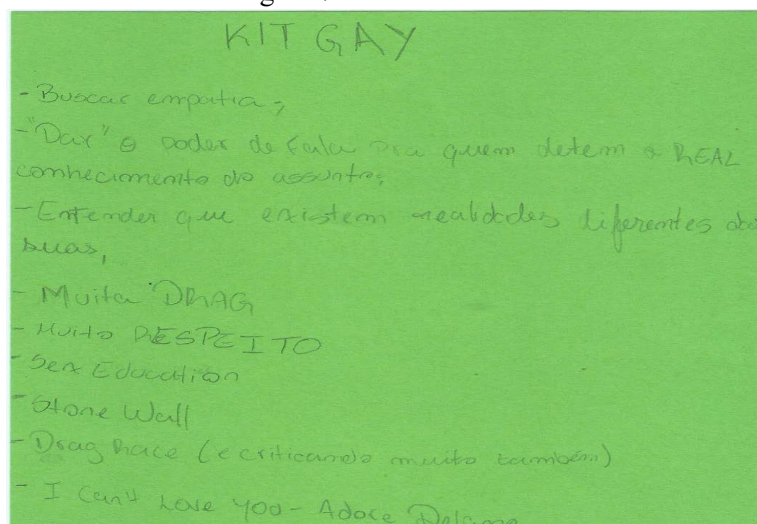 KIT GAY
- Buscar empatia;
- "Dar" o poder de fala pra quem detem o REAL
conhecimento do assunto;
- Entender que existem realidades diferentes das
suas,
- Muita DRAG
- Muito RESPEITO
- Sex Education
- Stone Wall
- Drag Race (e criticando muito também)
- I Can't Love You - Adore Delano